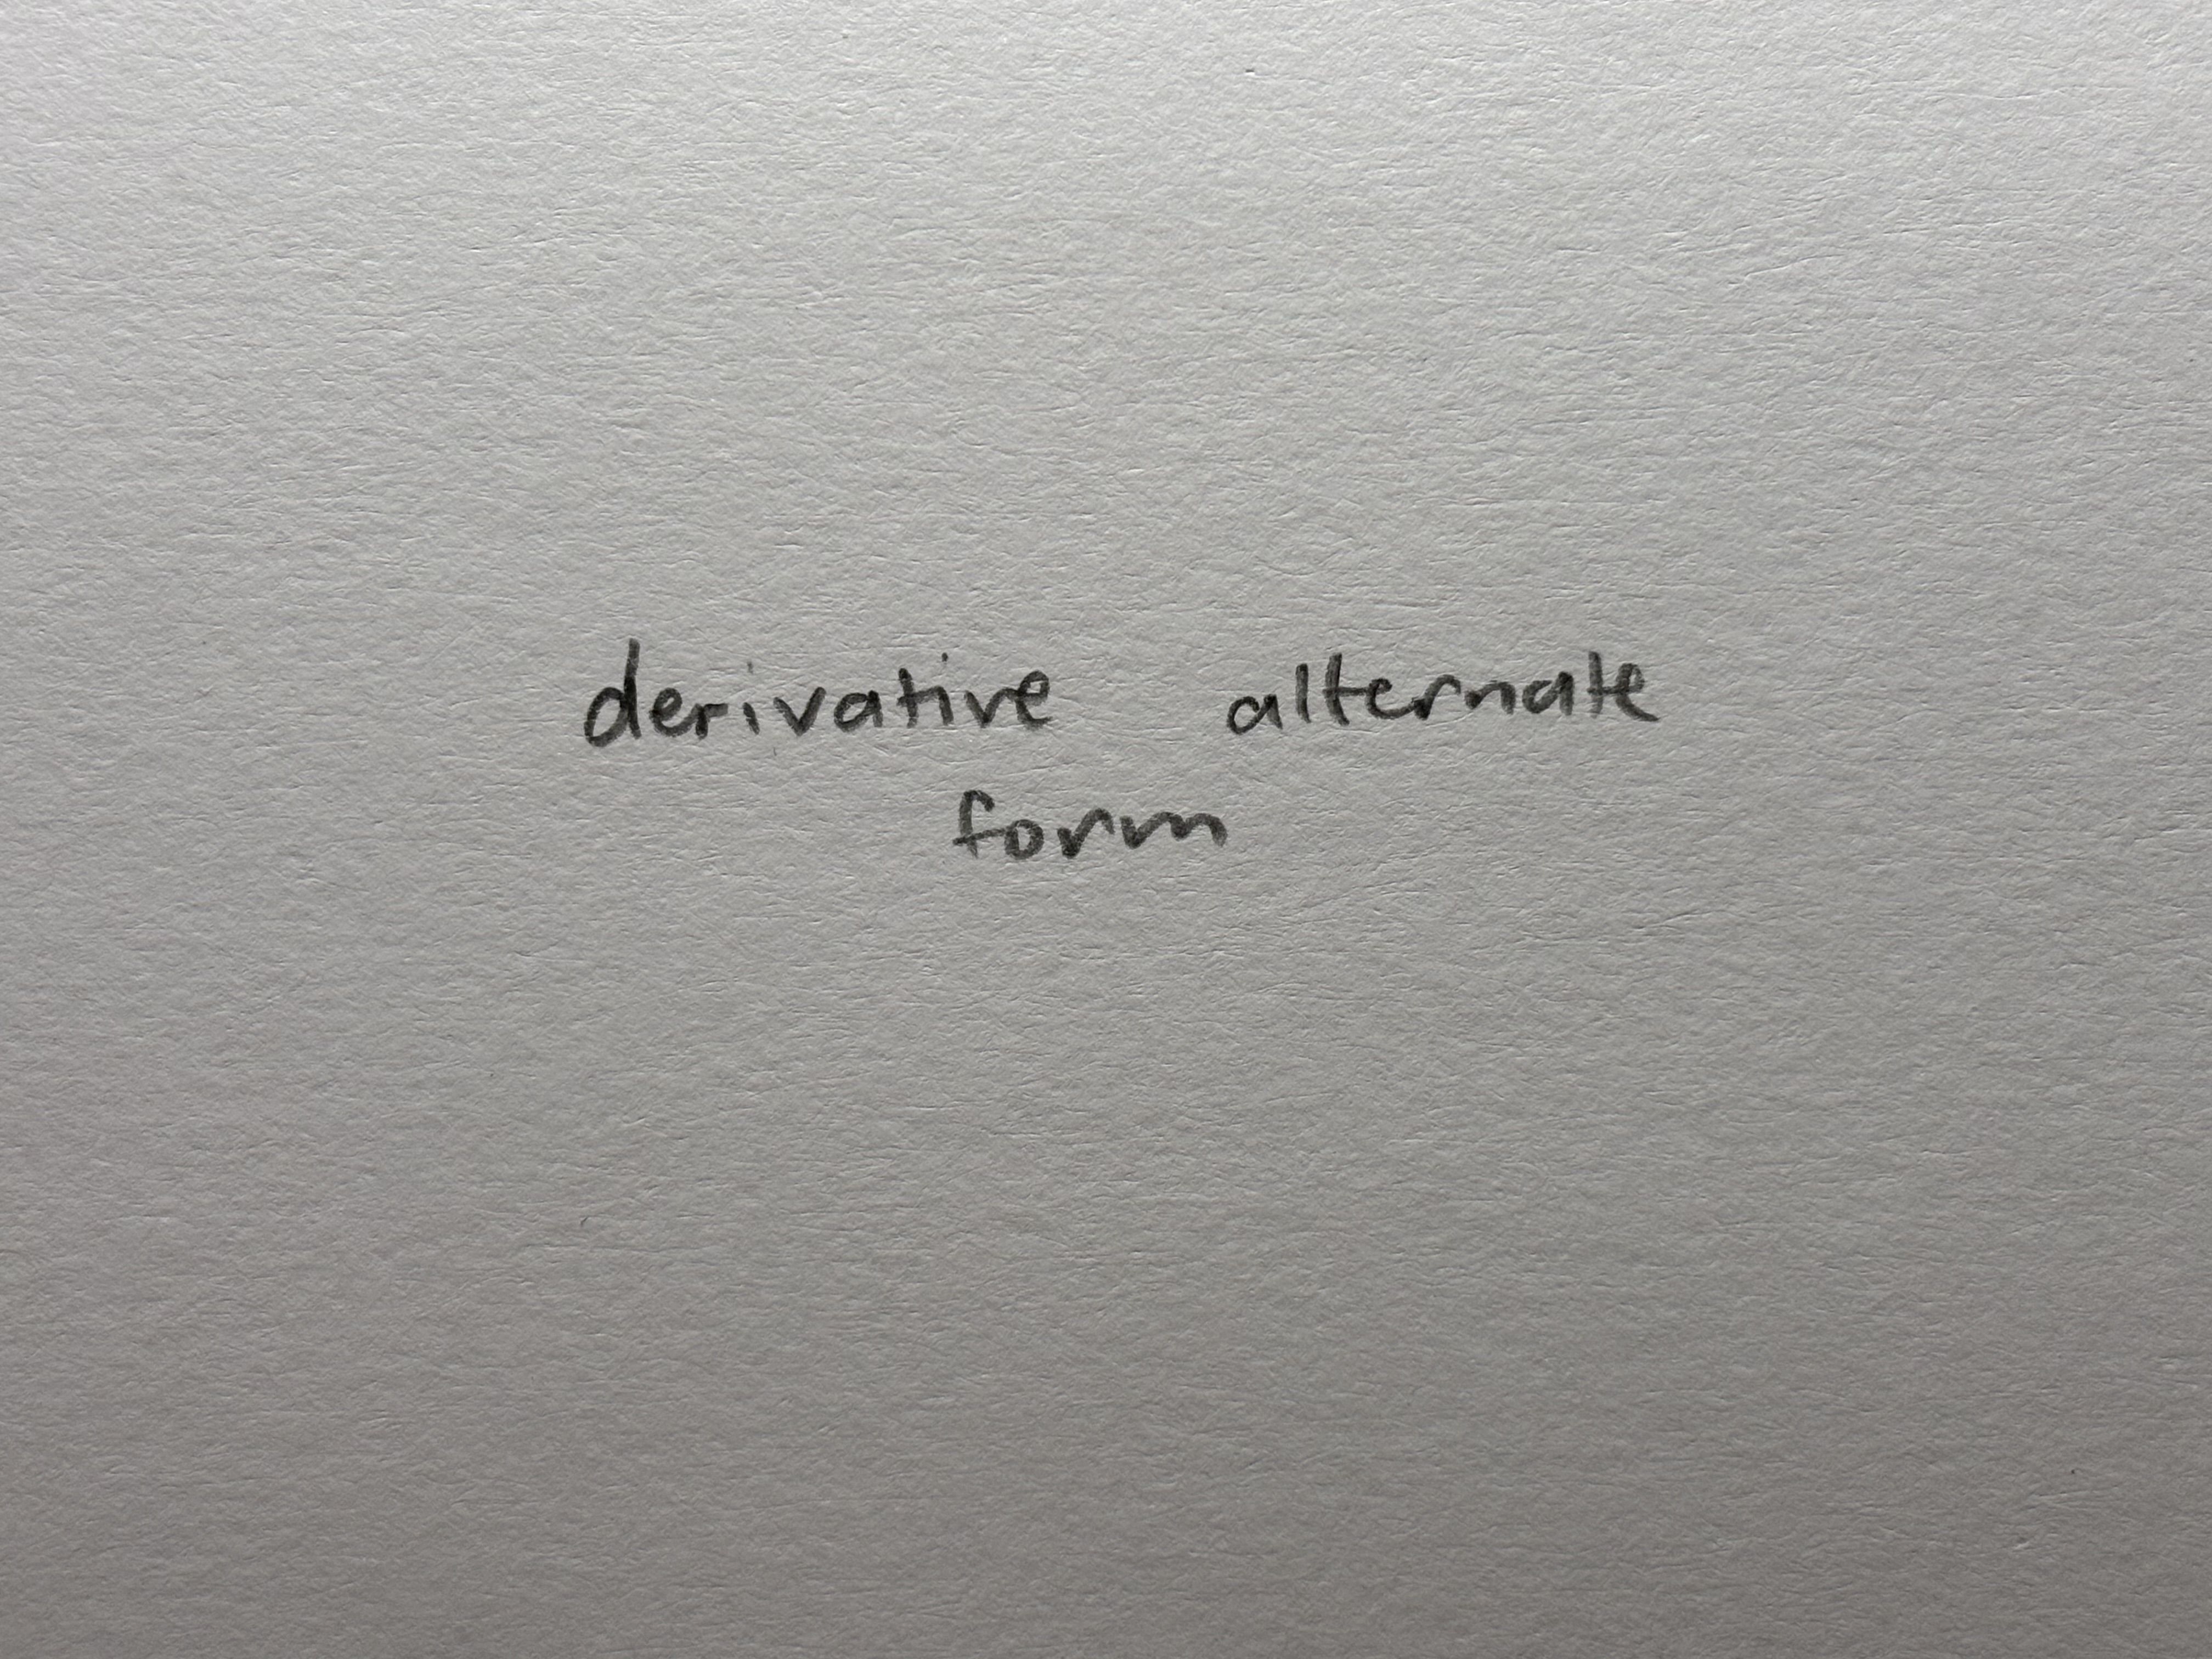 derivative alternate
form